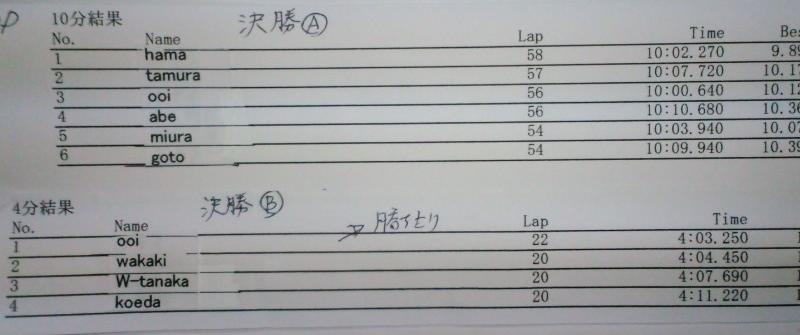 10分結果 決勝Ⓐ
No. Name Lap Time Bes
1 hama 58 10:02.270 9.89
2 tamura 57 10:07.720 10.17
3 ooi 56 10:00.640 10.12
4 abe 56 10:10.680 10.36
5 miura 54 10:03.940 10.07
6 goto 54 10:09.940 10.39
4分結果 決勝Ⓑ
No. Name Lap Time
1 ooi 22 4:03.250
2 wakaki 20 4:04.450
3 W-tanaka 20 4:07.690
4 koeda 20 4:11.220